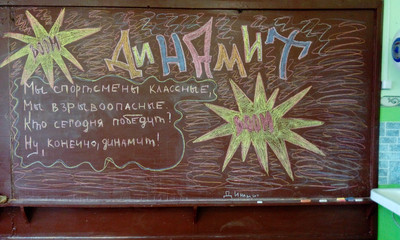 ДИНАМИТ
Мы спортсмены классные,
Мы взрывоопасные.
Кто сегодня победит?
Ну, конечно, динамит!